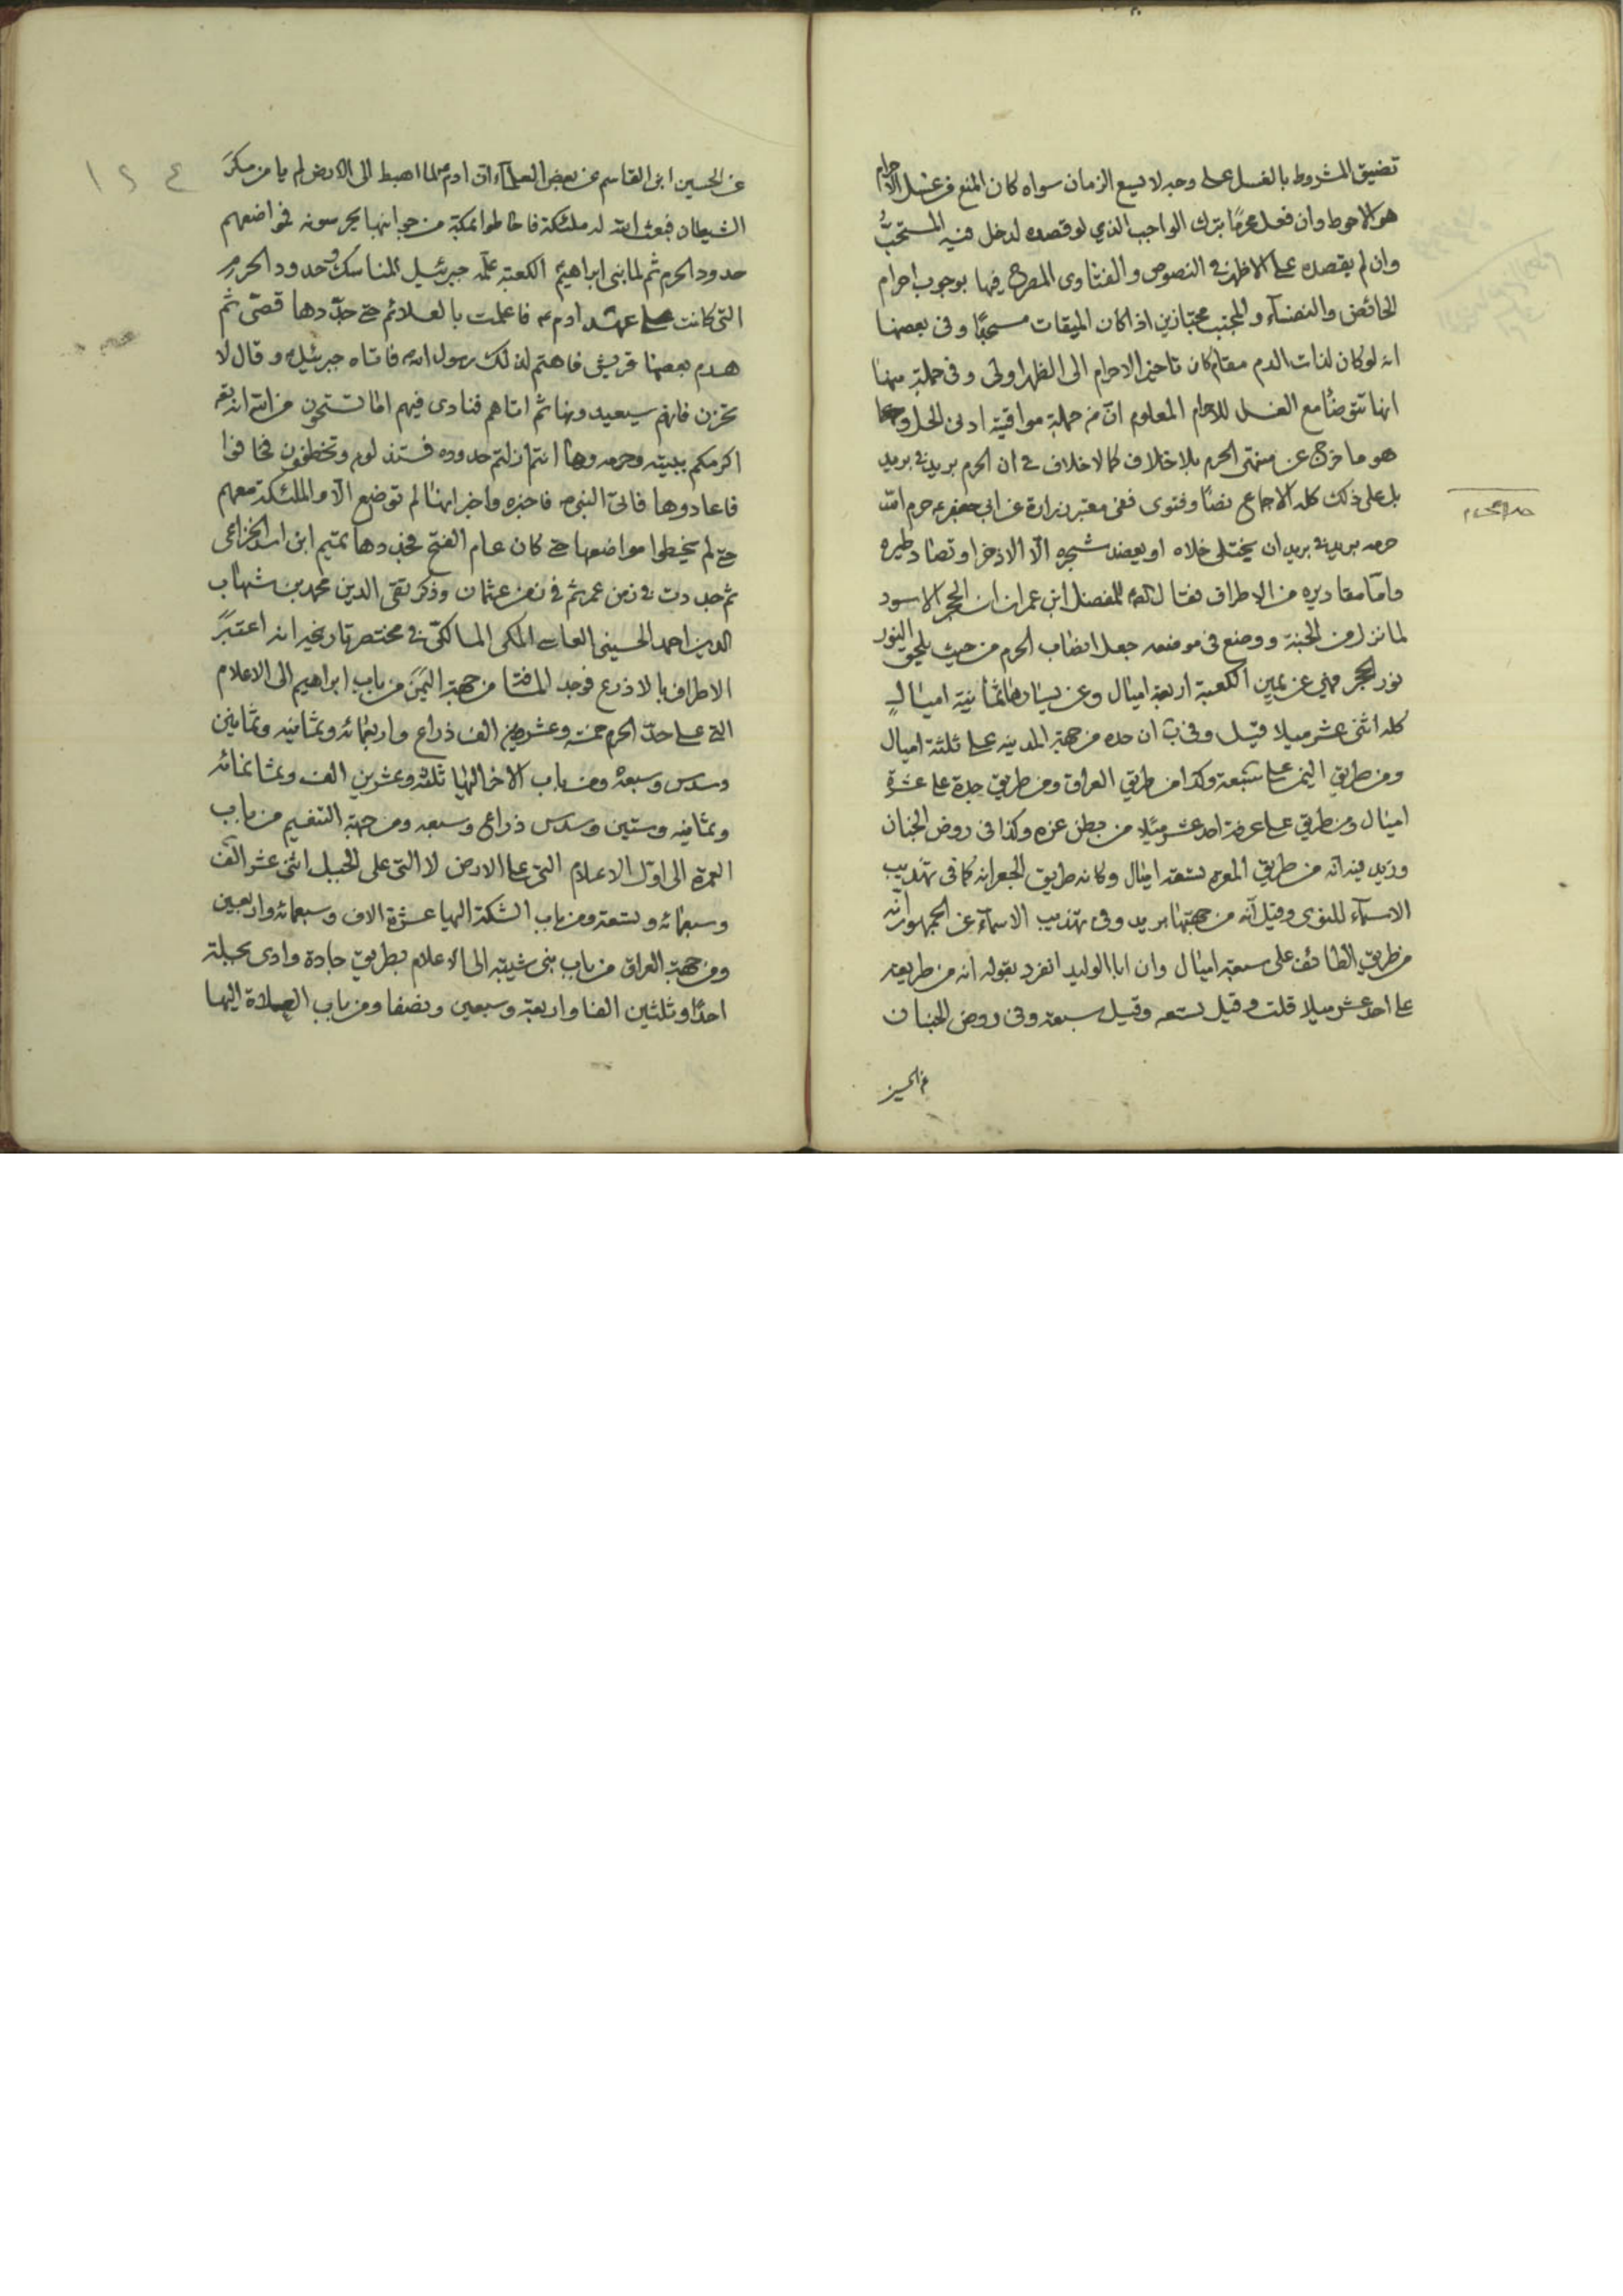 تضيق المشروط بالغسل على وجه لا يسع الزمان سواه كان المنع من غسل الاحرام
هو الاحوط وان فعل محرما بترك الواجب الذي لو قصده لدخل فيه المستحب
وان لم يقصده على الاظهر في النصوص والفتاوى المصرح فيها بوجوب احرام
الحائض والنفسآء والمجنب مجتازين اذا كان الميقات مسجدا وفي بعضها
انه لو كان لذات الدم مقام كان تاخير الاحرام الى الظهر اولى وفي جملة منها
انها تتوضأ مع الغسل للاحرام المعلوم ان من جملة مواقيته ادنى الحل و
هو ما خرج عن منتهى الحرم بلا خلاف كما لا خلاف في ان الحرم بريد في بريد
بل على ذلك كله الاجماع نصا وفتوى ففي معتبر زرارة عن ابي جعفر ع حرم الله
حرمه بريد في بريد ان يختلى خلاه او يعضد شجره الا الاذخر او تصاد طيره
واما مقاديره من الاطراف فقال للمفضل ابن عمر ان الحجر الاسود
لما نزل من الجنة ووضع في موضعه جعل انصاب الحرم من حيث يلحق النور
نور الحجر فهي عن يمين الكعبة اربعة اميال وعن يسارها ثمانية اميال
كله اثنى عشر ميلا قيل وفي ان حده من جهة المدينه على ثلثة اميال
ومن طريق اليمن على سبعة وكذا من طريق العراق ومن طريق جدة على عشرة
اميال ومن طريق على عرفة احد عشر ميلا من بطن عرنه وكذا في روض الجنان
وزيد فيه انه من طريق تسعة اميال وكانه طريق الجعرانه كما في تهذيب
الاسمآء للنووى وقيل انه من جهتها بريد وفي تهذيب الاسمآء عن الجمهور انه
من طريق الطائف على سبعة اميال وان ابا الوليد انفرد بقوله انه من طريقه
على احد عشر ميلا قلت وقيل تسعه وقيل سبعة وفي روض الجنان
عن الحسين
حد الحرم
١٢٤
عن الحسين ابن القاسم عن بعض العلمآء ان ادم ع لما اهبط الى الارض لم يامن مكر
الشيطان فبعث الله له ملئكة فاحاطوا بمكة من جوانبها يحرسونه فمواضعهم
حدود الحرم ثم لما بنى ابراهيم الكعبة علمه جبرئيل المناسك وحدود الحرم
التي كانت على عهد ادم ع فاعلمت بالعلائم حتى جددها قصى ثم
هدم بعضها قريش فاهتم لذلك رسول الله فاتاه جبرئيل وقال لا
تحزن فانهم سيعيدونها ثم اتاهم فنادى فيهم اما تستحون من الله انه
اكرمكم ببيته وحرمه وها انتم ازلتم حدوده فستذلون وتخطفون فخافوا
فاعادوها فاتى النبي ص فاخبره واخبر انها لم توضع الا والملئكة معهم
حتى لم يخطوا مواضعها حتى كان عام الفتح فجددها تميم ابن اسد الخزاعى
ثم جددت في زمن عمر ثم في زمن عثمان وذكر تقى الدين محمد بن شهاب
الدين احمد الحسينى الفاسى المكى المالكى في مختصر تاريخه انه اعتبر
الاطراف بالاذرع فوجد المسافة من جهة اليمن من باب ابراهيم الى الاعلام
التى على حد الحرم خمسة وعشرين الف ذراع واربعمائه وثمانيه وثمانين
وسدس وسبعه ومن باب الاخر اليها ثلثة وعشرين الف وثمانمائه
وثمانيه وستين وسدس ذراع وسبعه ومن جهة التنعيم من باب
العمرة الى اول الاعلام التى على الارض لا التى على الجبل اثنى عشر الف
وسبعمائه وتسعة ومن باب الشبكة اليها عشرة الاف وسبعمائه واربعين
ومن جهة العراق من باب بنى شيبه الى الاعلام بطريق جادة وادى
احدا وثلثين الفا واربعة وسبعين ونصفا ومن باب اليها